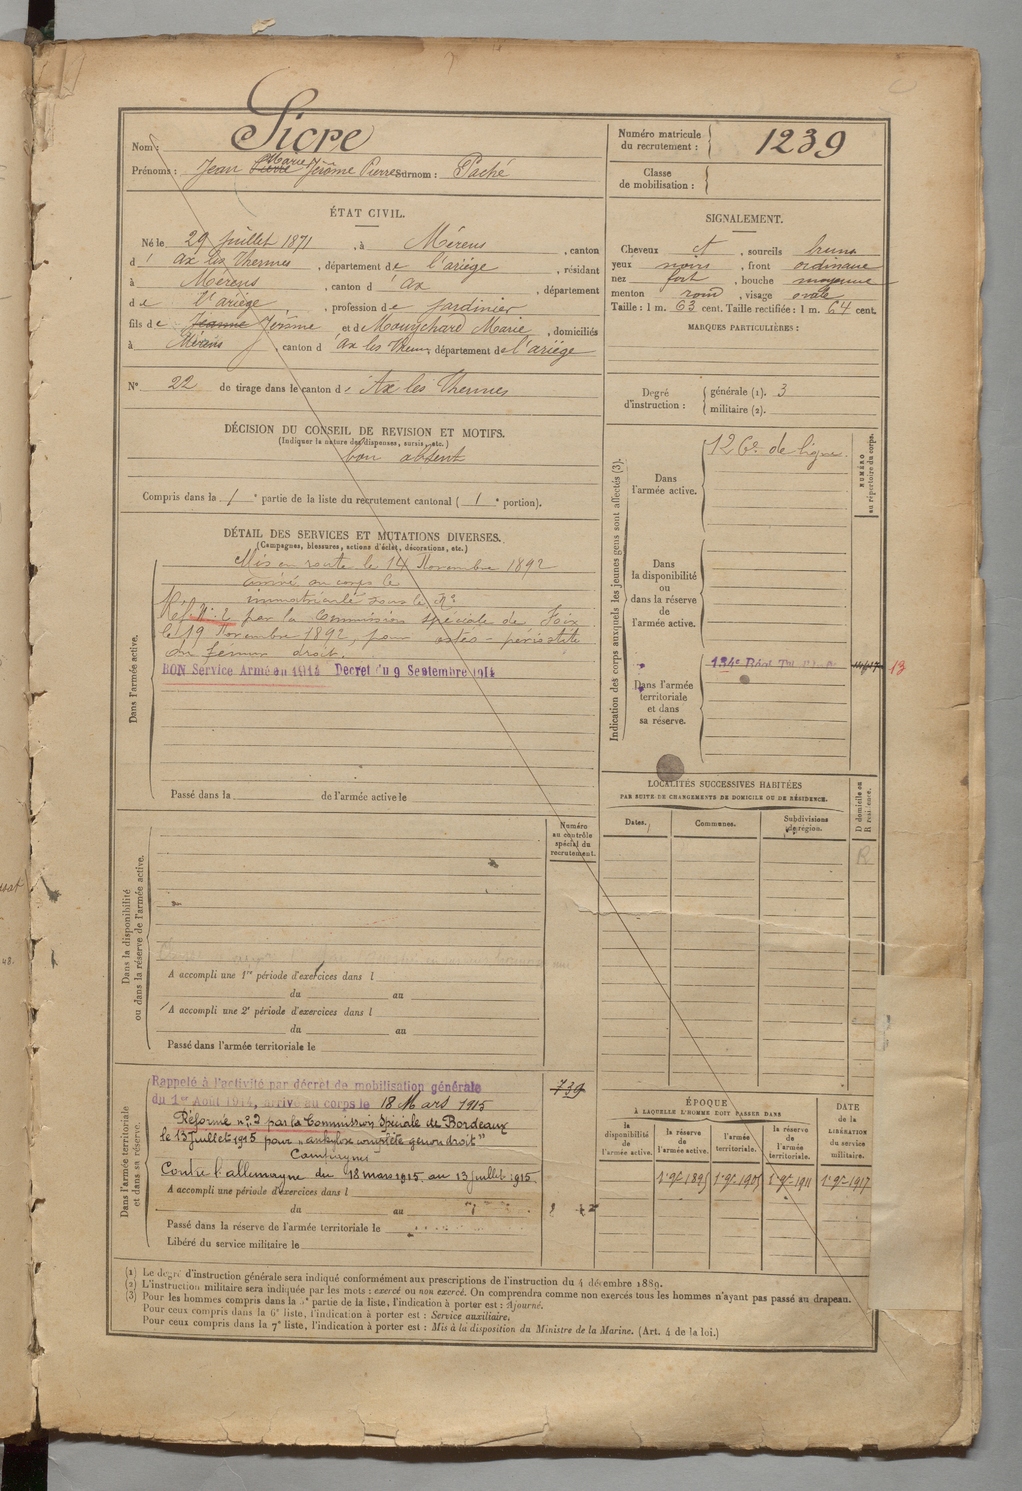 Nom : Sicre
Prénoms : Jean Pierre Marie Jérôme Pierre Surnom : Paché
Numéro matricule du recrutement : 1239
Classe de mobilisation :
ÉTAT CIVIL.
Né le 29 Juillet 1871, à Mérens, canton
d' Ax les Thermes, département de l'ariège, résidant
à Mérens, canton d' Ax, département
de l'ariège, profession de jardinier
fils de Jeanne Jérôme et de Mouychard Marie, domiciliés
à Mérens, canton d' Ax les Thermes, département de l'ariège
N° 22 de tirage dans le canton d' Ax les Thermes
SIGNALEMENT.
Cheveux ct, sourcils bruns
yeux noirs, front ordinaire
nez fort, bouche moyenne
menton rond, visage ovale
Taille : 1 m. 63 cent. Taille rectifiée : 1 m. 64 cent.
MARQUES PARTICULIÈRES :
Degré d'instruction : générale (1). 3
militaire (2).
DÉCISION DU CONSEIL DE REVISION ET MOTIFS.
(Indiquer la nature des dispenses, sursis, etc.)
bon absent
Compris dans la 1e partie de la liste du recrutement cantonal ( 1e portion).
DÉTAIL DES SERVICES ET MUTATIONS DIVERSES.
(Campagnes, blessures, actions d'éclat, décorations, etc.)
Dans l'armée active.
Mis en route le 14 Novembre 1892
arrivé au corps le
immatriculé sous le N°
Réf. N° 2 par la Commission spéciale de Foix
le 19 Novembre 1892, pour ostéo-periostite
du femur droit.
BON Service Armé en 1914 Decret du 9 Septembre 1914
Passé dans la de l'armée active le
Indication des corps auxquels les jeunes gens sont affectés (3).
NUMÉRO au répertoire du corps.
Dans l'armée active.
126e de ligne.
Dans la disponibilité ou dans la réserve de l'armée active.
Dans l'armée territoriale et dans sa réserve.
13
LOCALITÉS SUCCESSIVES HABITÉES
PAR SUITE DE CHANGEMENTS DE DOMICILE OU DE RÉSIDENCE.
D domicile ou R résidence.
Dates. Communes. Subdivisions de région.
R
Numéro au contrôle spécial du recrutement.
Dans la disponibilité ou dans la réserve de l'armée active.
A accompli une 1re période d'exercices dans l
du au
A accompli une 2e période d'exercices dans l
du au
Passé dans l'armée territoriale le
Dans l'armée territoriale et dans sa réserve.
Rappelé à l'activité par décret de mobilisation générale
du 1er Août 1914, arrivé au corps le 18 Mars 1915
739
Réformé n° 2 par la Commission Spéciale de Bordeaux
le 13 juillet 1915 pour "ankylose complète genou droit"
Campagnes
Contre l'allemagne du 18 mars 1915 au 13 juillet 1915
A accompli une période d'exercices dans l
du au
Passé dans la réserve de l'armée territoriale le
Libéré du service militaire le
ÉPOQUE
À LAQUELLE L'HOMME DOIT PASSER DANS
la disponibilité de l'armée active.
la réserve de l'armée active.
l'armée territoriale.
la réserve de l'armée territoriale.
DATE de la LIBÉRATION du service militaire.
1er 9bre 1895 1er 9bre 1905 1er 9bre 1911 1er 9bre 1917
(1) Le degré d'instruction générale sera indiqué conformément aux prescriptions de l'instruction du 4 décembre 1889.
(2) L'instruction militaire sera indiquée par les mots : exercé ou non exercé. On comprendra comme non exercés tous les hommes n'ayant pas passé au drapeau.
(3) Pour les hommes compris dans la 5e partie de la liste, l'indication à porter est : Ajourné.
Pour ceux compris dans la 6e liste, l'indication à porter est : Service auxiliaire.
Pour ceux compris dans la 7e liste, l'indication à porter est : Mis à la disposition du Ministre de la Marine. (Art. 4 de la loi.)